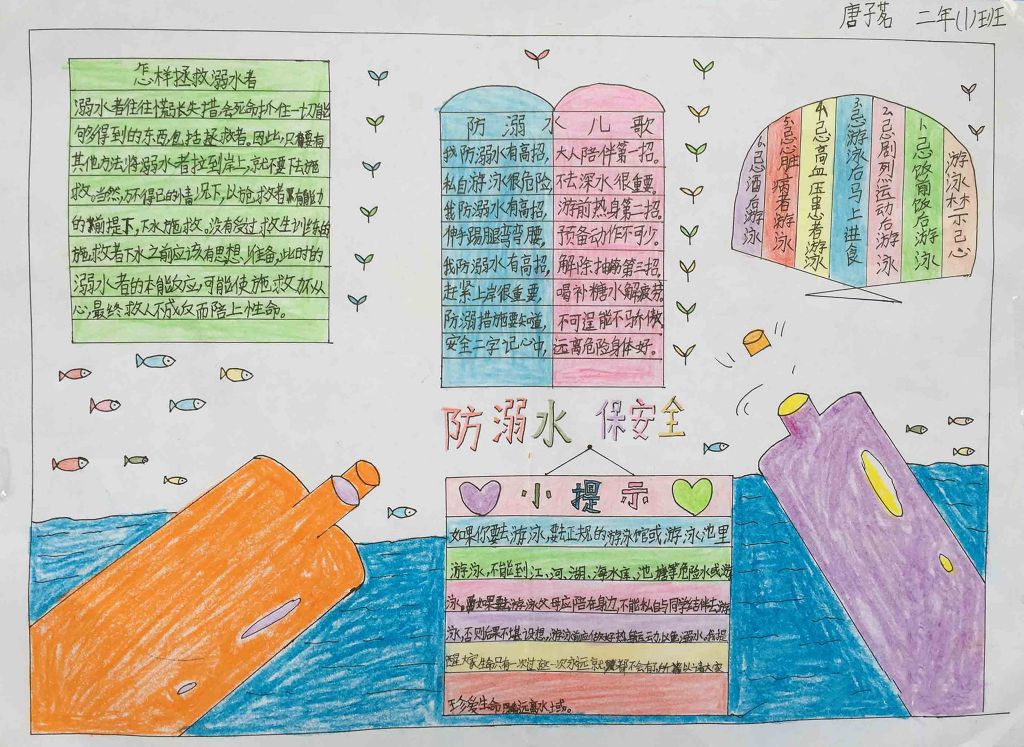 唐子茗 二年(1)班
怎样拯救溺水者
溺水者往往慌张失措,会死命抓住一切能
够得到的东西包括拯救者。因此,只要有
其他办法将溺水者拉到岸上,就不要下去施
救。当然,万不得已的情况下,以施救者有能力
的前提下,下水施救。没有受过救生训练的
施救者下水之前应该有思想准备,此时的
溺水者的本能反应,可能使施救亦从
心,最终救人不成反而陪上性命。
防溺水儿歌
我防溺水有高招,大人陪伴第一招。
私自游泳很危险,不去深水很重要。
我防溺水有高招,游前热身第二招。
伸手踢腿弯弯腰,预备动作不可少。
我防溺水有高招,解除抽筋第三招。
赶紧上岸很重要,喝补糖水解疲劳。
防溺措施要知道,不可逞能不骄傲。
安全二字记心中,远离危险身体好。
游泳禁忌
1.忌饭前饭后游泳
2.忌剧烈运动后游泳
3.忌游泳后马上进食
4.忌高血压患者游泳
5.忌心脏病者游泳
6.忌酒后游泳
防溺水 保安全
小提示
如果你要去游泳,要去正规的游泳馆或游泳池里
游泳,不能到江、河、湖、海水库、池塘等危险水或游
泳。如果要去游泳父母应陪在身边,不能私自与同学结伴去游
泳,否则后果不堪设想。游泳前应做好热身运动,以免溺水。各提
醒大家生命只有一次过这一次永远就都不会有所以请大家
珍爱生命远离水域。